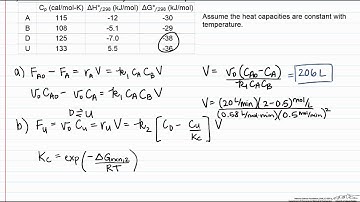 Cₚ (cal/mol-K) ΔH°/298 (kJ/mol) ΔG°/298 (kJ/mol)
A 115 -12 -30
B 108 -5.1 -29
D 125 -7.0 -38
U 133 5.5 -36
Assume the heat capacities are constant with
temperature.
a) F_A0 - F_A = r_A V = -k₁ C_A C_B V
v₀ C_A0 - v₀ C_A = -k₁ C_A C_B V
V = v₀ (C_A0 - C_A) / k₁ C_A C_B = 206 L
V = (20 L/min)(2 - 0.5) mol/L / (0.58 L/mol min)(0.5 mol/L)²
D ⇌ U
b) F_U = v₀ C_U = r_U V = -k₂ [C_D - C_U/K_C] V
K_C = exp(-ΔG_rxn,2 / RT)